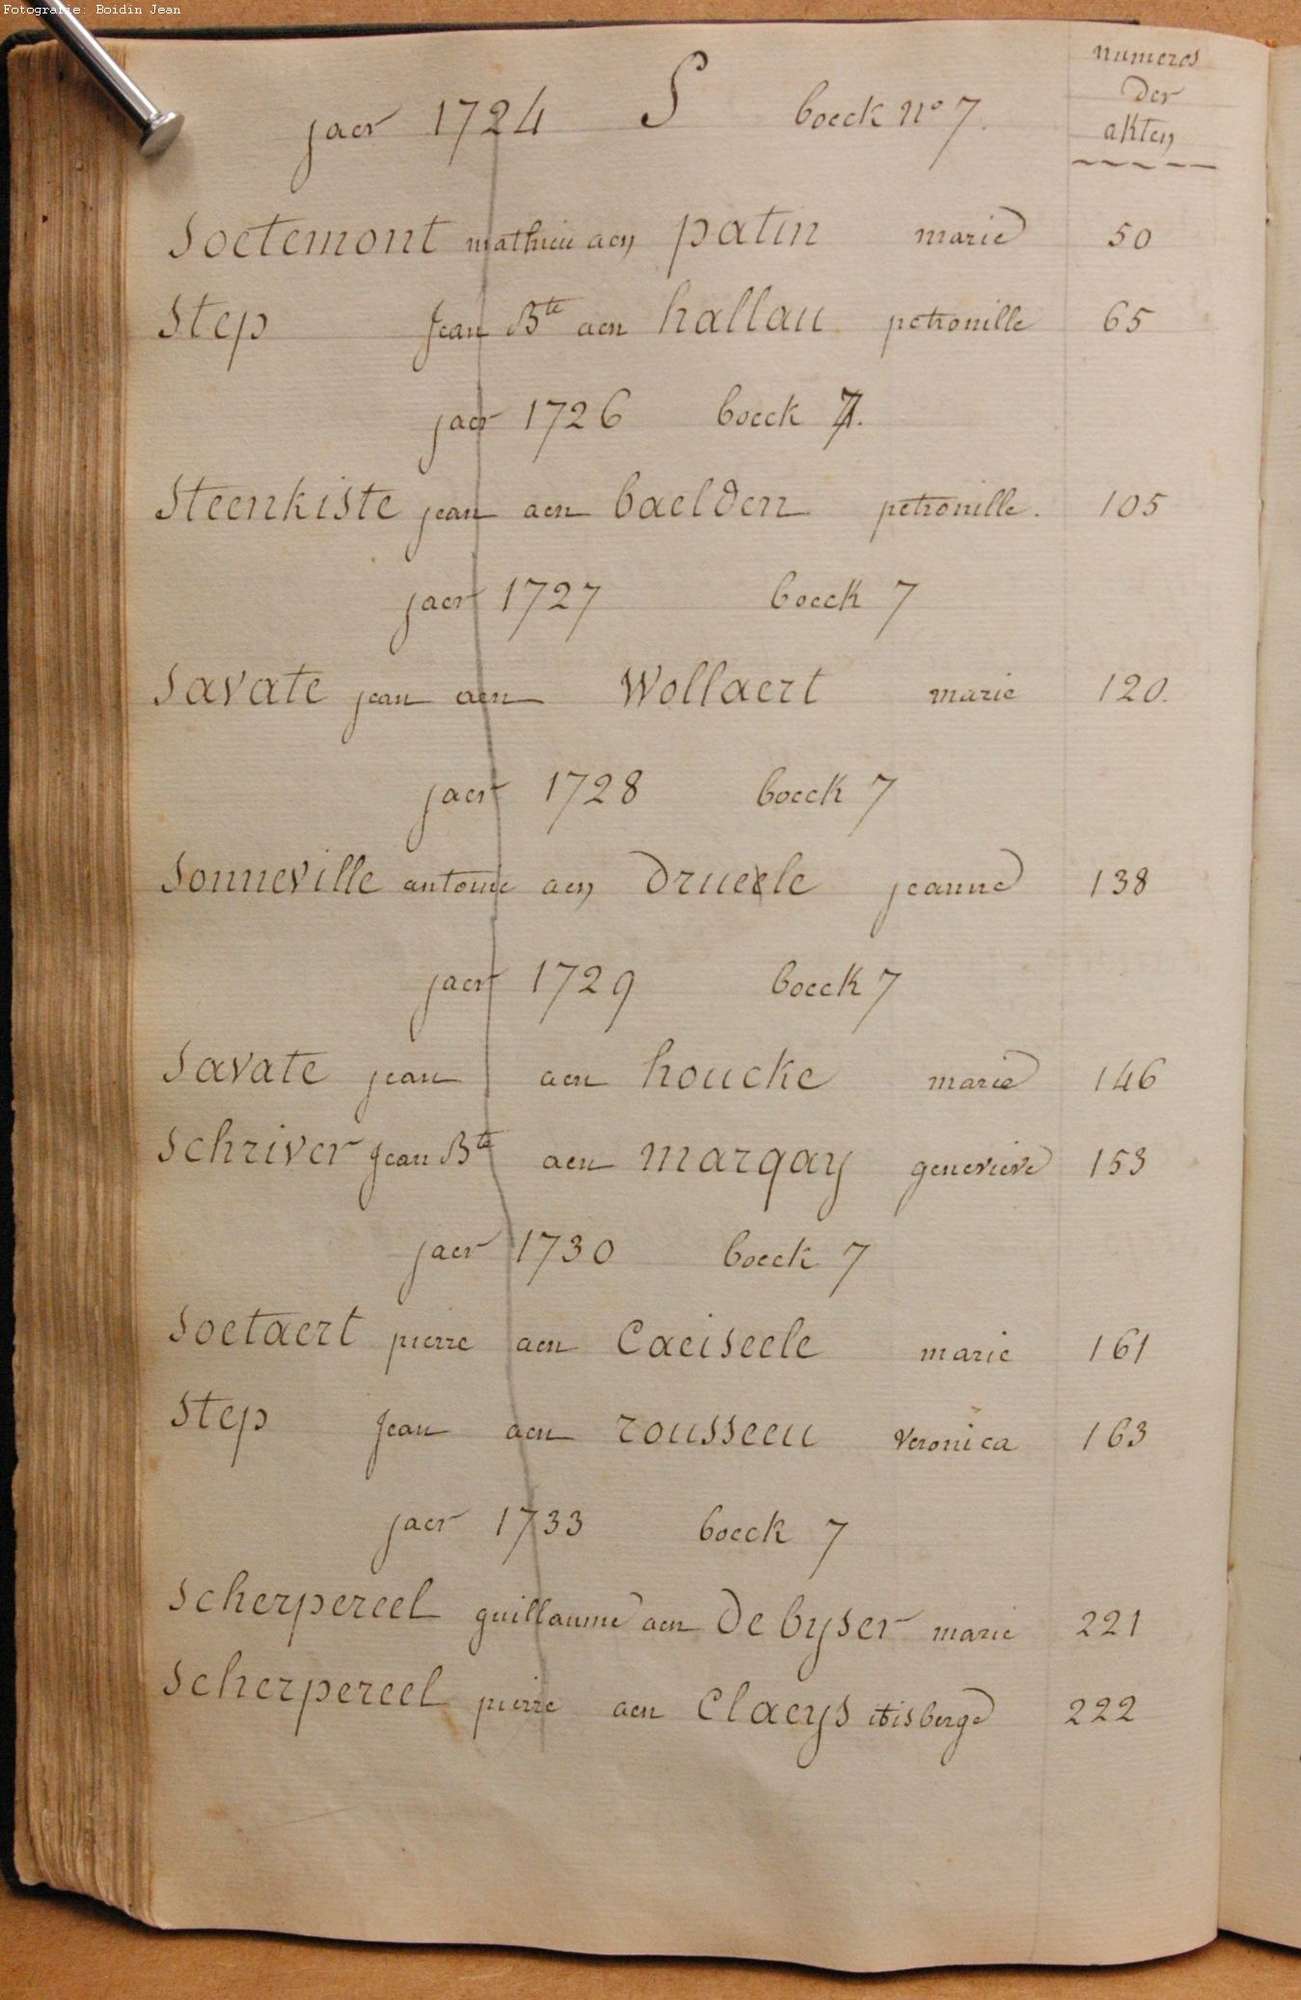 Fotografie: Boidin Jean
numeros
der
akten
jaer 1724 S boeck n° 7.
Soetemont mathieu aen patin marie 50
Step Jean Bte aen hallau petronille 65
jaer 1726 boeck 7.
Steenkiste jean aen baelden petronille. 105
jaer 1727 boeck 7
Savate jean aen Wollaert marie 120.
jaer 1728 boeck 7
Sonneville antoine aen Drueele jeanne 138
jaer 1729 boeck 7
Savate jean aen houcke marie 146
Schriver Jean Bte aen marqay genevieve 153
jaer 1730 boeck 7
Soetaert pierre aen Caeiseele marie 161
Step Jean aen rousseeu Veronica 163
jaer 1733 boeck 7
Scherpereel guillaume aen De byser marie 221
Scherpereel pierre aen Claeys 222